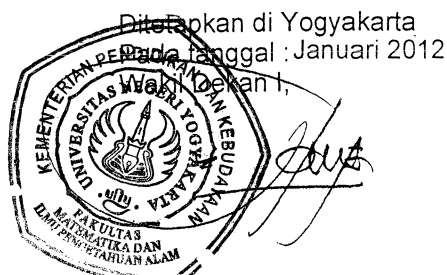 Ditetapkan di Yogyakarta
Pada tanggal : Januari 2012
Wakil Dekan I,
KEMENTERIAN PENDIDIKAN DAN KEBUDAYAAN
UNIVERSITAS NEGERI YOGYAKARTA
FAKULTAS
MATEMATIKA DAN
ILMU PENGETAHUAN ALAM